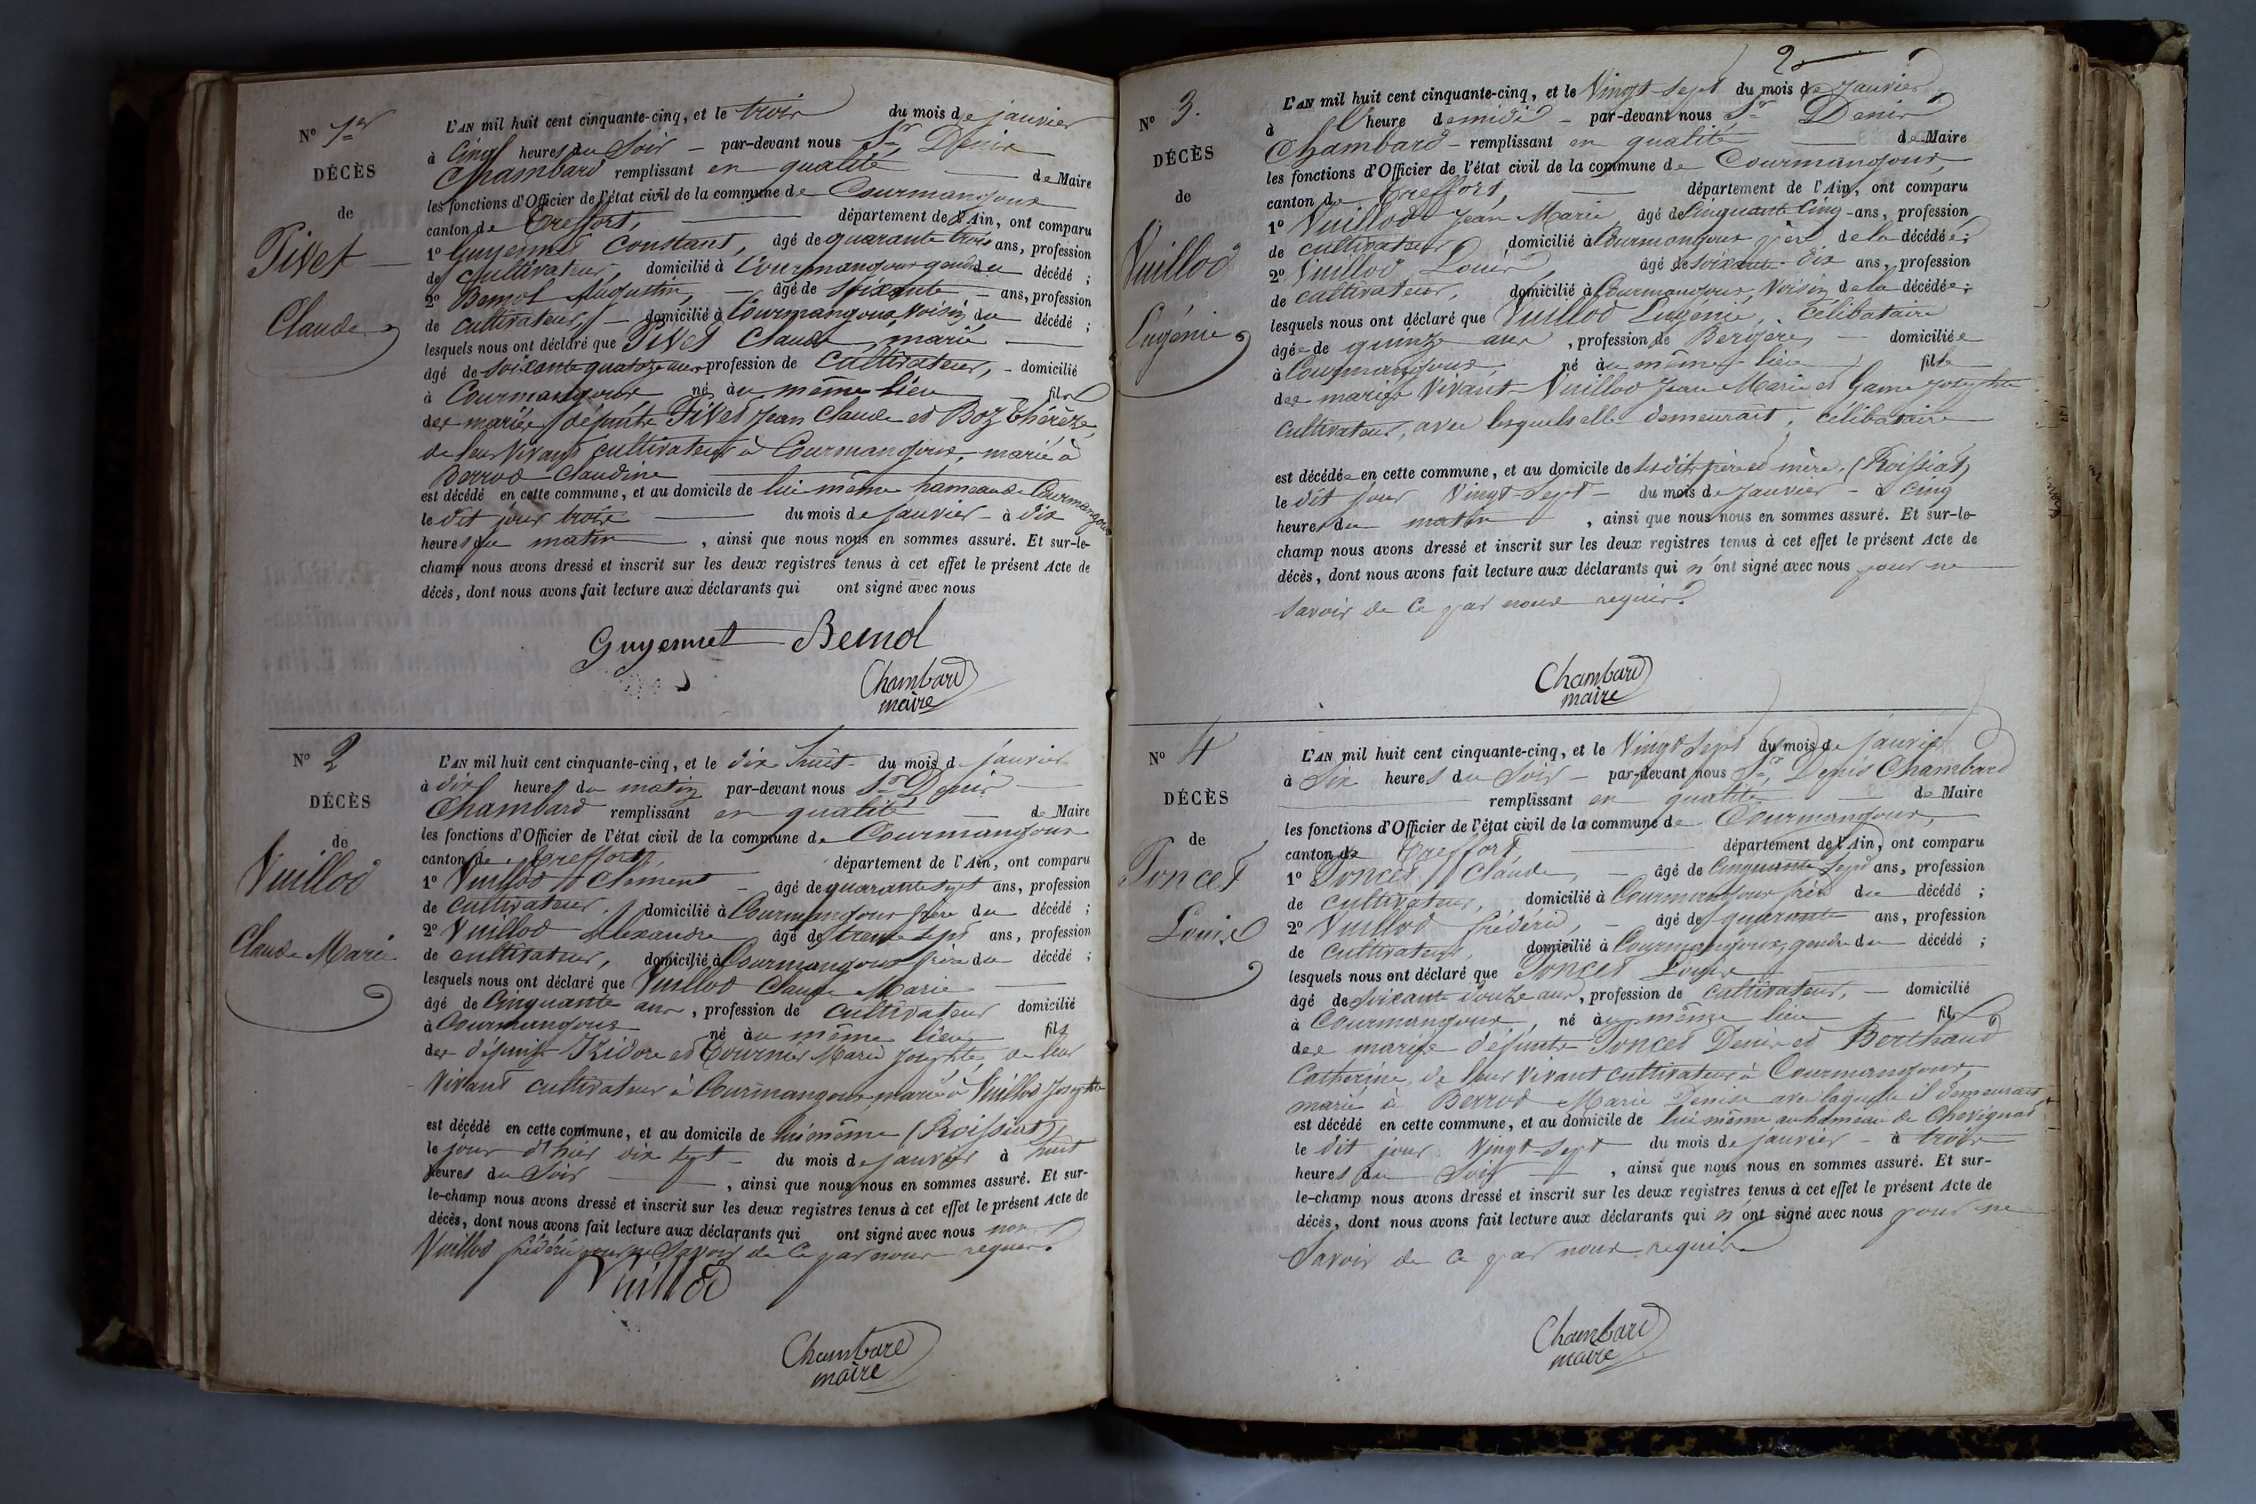 N° 1er
DÉCÈS
de
Pivet
Claude
L'AN mil huit cent cinquante-cinq, et le trois du mois de janvier
à Cinq heures du Soir - par-devant nous Sr Denis
Chambard remplissant en qualité de Maire
les fonctions d'Officier de l'état civil de la commune de Courmangoux
canton de Treffort, département de l'Ain, ont comparu
1° Guyennet Constant, âgé de quarante trois ans, profession
de Cultivateur, domicilié à Courmangoux gendre du décédé ;
2° Bernol Augustin, - âgé de soixante - ans, profession
de cultivateur, - domicilié à Courmangoux, Voisin du décédé ;
lesquels nous ont déclaré que Pivet Claude, marié
âgé de soixante quatorze ans, profession de Cultivateur, - domicilié
à Courmangoux né au même lieu fils
des mariés défunts Pivet Jean Claude et Boz Thérèze,
de leur Vivant cultivateurs à Courmangoux, marié à
Berrod Claudine
est décédé en cette commune, et au domicile de lui même hameau de Courmangoux
le dit jour trois du mois de janvier - à dix
heures du matin, ainsi que nous nous en sommes assuré. Et sur-le-
champ nous avons dressé et inscrit sur les deux registres tenus à cet effet le présent Acte de
décès, dont nous avons fait lecture aux déclarants qui ont signé avec nous
Guyennet Bernol
Chambard
maire
N° 2
DÉCÈS
de
Vuillod
Claude Marie
L'AN mil huit cent cinquante-cinq, et le dix huit du mois de janvier
à dix heures du matin par-devant nous Sr Denis
Chambard remplissant en qualité de Maire
les fonctions d'Officier de l'état civil de la commune de Courmangoux
canton de Treffort, département de l'Ain, ont comparu
1° Vuillod Clément - âgé de quarante sept ans, profession
de cultivateur, domicilié à Courmangoux frère du décédé ;
2° Vuillod Alexandre âgé de trente sept ans, profession
de cultivateur, domicilié à Courmangoux frère du décédé ;
lesquels nous ont déclaré que Vuillod Claude Marie
âgé de Cinquante ans, profession de cultivateur domicilié
à Courmangoux né au même lieu fils
des défunts Isidore et Tournier Marie Josephte, de leur
Vivant cultivateur à Courmangoux, marié à Vuillod Josephte
est décédé en cette commune, et au domicile de lui même (Roissiat)
le jour d'hier dix sept - du mois de janvier à huit
heures du Soir, ainsi que nous nous en sommes assuré. Et sur-
le-champ nous avons dressé et inscrit sur les deux registres tenus à cet effet le présent Acte de
décès, dont nous avons fait lecture aux déclarants qui ont signé avec nous non
Vuillod pour ne Savoir de Ce par nous requis.
Vuillod
Chambard
maire
2
N° 3.
DÉCÈS
de
Vuillod
Eugénie
L'AN mil huit cent cinquante-cinq, et le Vingt Sept du mois de Janvier
à l'heure de midi - par-devant nous Sr Denis
Chambard - remplissant en qualité de Maire
les fonctions d'Officier de l'état civil de la commune de Courmangoux,
canton de Treffort, département de l'Ain, ont comparu
1° Vuillod Jean Marie, âgé de Cinquante Cinq - ans, profession
de cultivateur, domicilié à Courmangoux père de la décédée ;
2° Vuillod Louis, âgé de soixante dix ans, profession
de cultivateur, domicilié à Courmangoux, Voisin de la décédée ;
lesquels nous ont déclaré que Vuillod Eugénie, Célibataire
âgée de quinze ans, profession de Bergère, - domiciliée
à Courmangoux, né au même lieu fille
des mariés Vivants Vuillod Jean Marie et Game Josephte
cultivateurs, avec lesquels elle demeurait, célibataire
est décédée en cette commune, et au domicile de ses dits père et mère. (Roissiat)
le dit jour Vingt-Sept - du mois de Janvier - à Cinq
heures du matin, ainsi que nous nous en sommes assuré. Et sur-le-
champ nous avons dressé et inscrit sur les deux registres tenus à cet effet le présent Acte de
décès, dont nous avons fait lecture aux déclarants qui n'ont signé avec nous pour ne
Savoir de Ce par nous requis.
Chambard
maire
N° 4
DÉCÈS
de
Poncet
Louis
L'AN mil huit cent cinquante-cinq, et le Vingt Sept du mois de janvier
à Six heures du Soir - par-devant nous Sr Denis Chambard
remplissant en qualité de Maire
les fonctions d'Officier de l'état civil de la commune de Courmangoux,
canton de Treffort département de l'Ain, ont comparu
1° Poncet Claude, - âgé de Cinquante Sept ans, profession
de cultivateur, domicilié à Courmangoux frère du décédé ;
2° Vuillod frédéric, - âgé de quarante ans, profession
de cultivateur, domicilié à Courmangoux, gendre du décédé ;
lesquels nous ont déclaré que Poncet Louis
âgé de Soixante douze ans, profession de cultivateur, - domicilié
à Courmangoux, né au même lieu fils
des mariés défunts Poncet Denis et Berthaud
Catherine, de leur vivant cultivateurs à Courmangoux,
marié à Berrod Marie Denise avec laquelle il demeurait
est décédé en cette commune, et au domicile de lui même au hameau de Chevignat
le dit jour Vingt-Sept du mois de janvier - à trois
heures du Soir, ainsi que nous nous en sommes assuré. Et sur-
le-champ nous avons dressé et inscrit sur les deux registres tenus à cet effet le présent Acte de
décès, dont nous avons fait lecture aux déclarants qui n'ont signé avec nous pour ne
Savoir de Ce par nous requis.
Chambard
maire